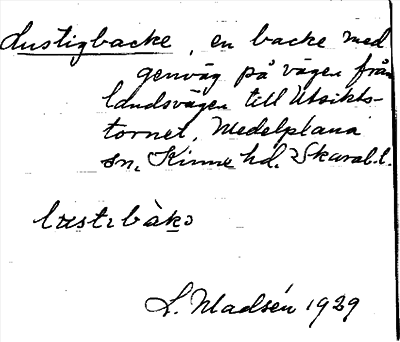 Lustigbacke, en backe med
genväg på vägen från
landsvägen till Utsikts-
tornet, Medelplana
sn, Kinne hd. Skarab. l.
L. Madsén 1929